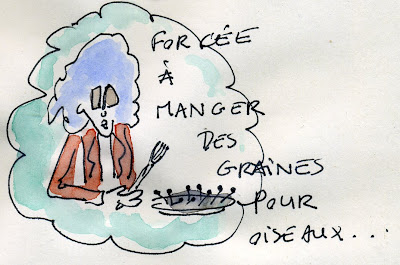 FORCÉE
À
MANGER
DES
GRAINES
POUR
OISEAUX...